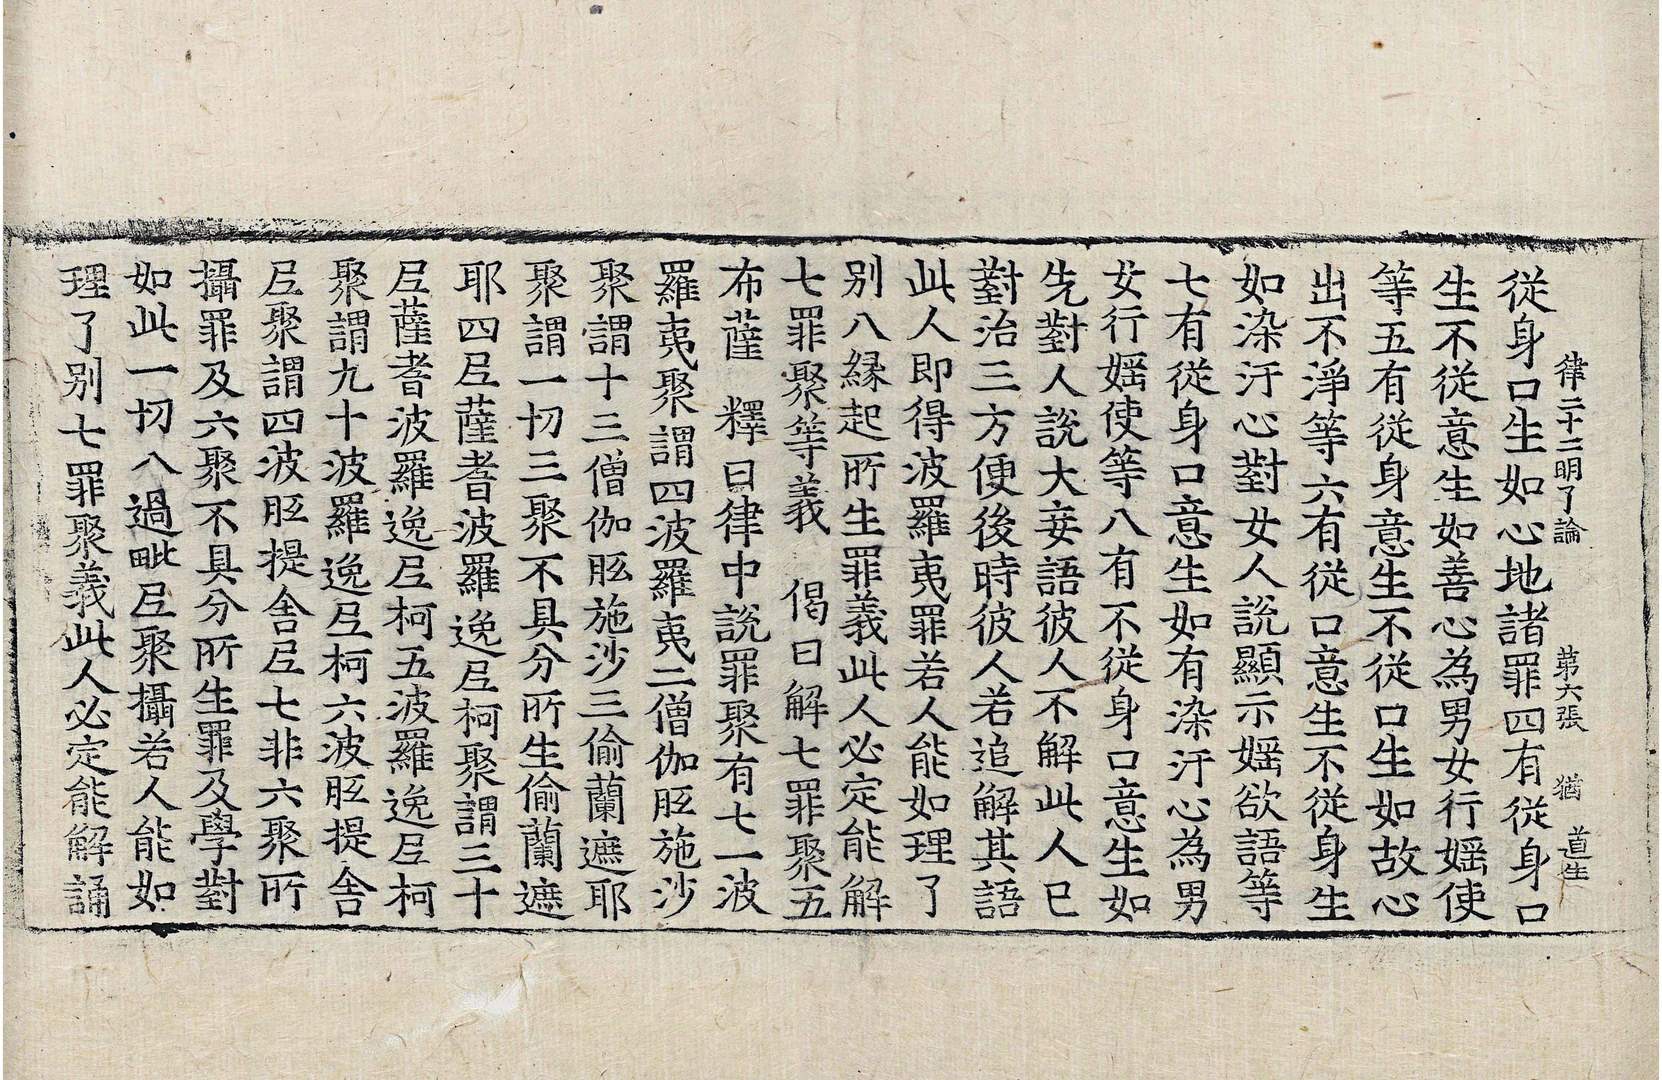 律二十二明了論　第六張　猶　道生
從身口生如心地諸罪四有從身口
生不從意生如善心為男女行婬使
等五有從身意生不從口生如故心
出不淨等六有從口意生不從身生
如染汙心對女人說顯示婬欲語等
七有從身口意生如有染汙心為男
女行婬使等八有不從身口意生如
先對人說大妄語彼人不解此人已
對治三方便後時彼人若追解其語
此人即得波羅夷罪若人能如理了
别八縁起所生罪義此人必定能解
七罪聚等義　偈曰解七罪聚五
布薩　釋曰律中說罪聚有七一波
羅夷聚謂四波羅夷二僧伽胝施沙
聚謂十三僧伽胝施沙三偷蘭遮耶
聚謂一切三聚不具分所生偷蘭遮
耶四尼薩耆波羅逸尼柯聚謂三十
尼薩耆波羅逸尼柯五波羅逸尼柯
聚謂九十波羅逸尼柯六波胝提舍
尼聚謂四波胝提舍尼七非六聚所
攝罪及六聚不具分所生罪及學對
如此一切八過毗尼聚攝若人能如
理了别七罪聚義此人必定能解誦